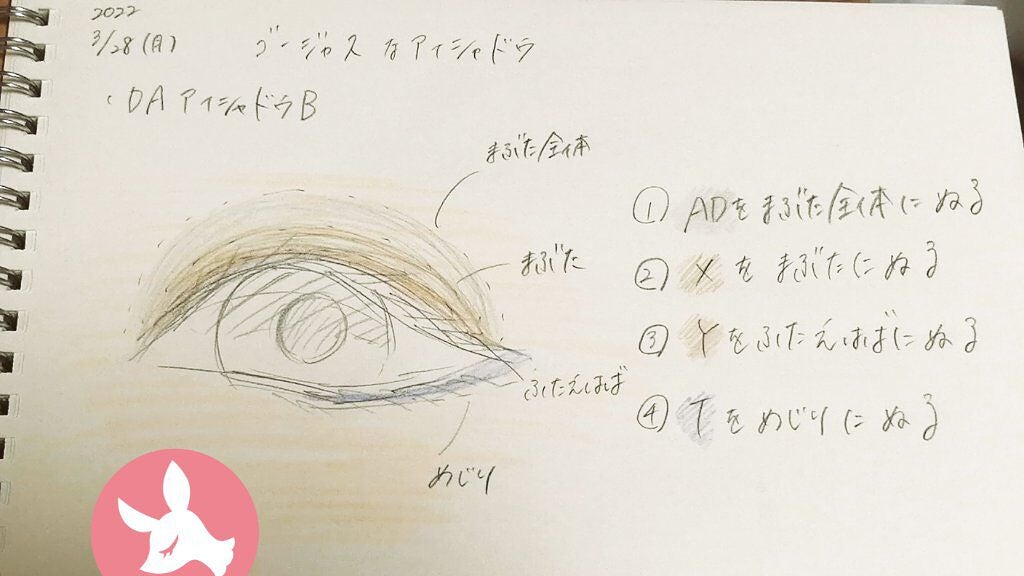 2022
3/28(月)
ゴージャスなアイシャドウ
・DAアイシャドウB
まぶた全体
まぶた
ふたえはば
めじり
① ADをまぶた全体にぬる
② Xをまぶたにぬる
③ Yをふたえはばにぬる
④ Tをめじりにぬる